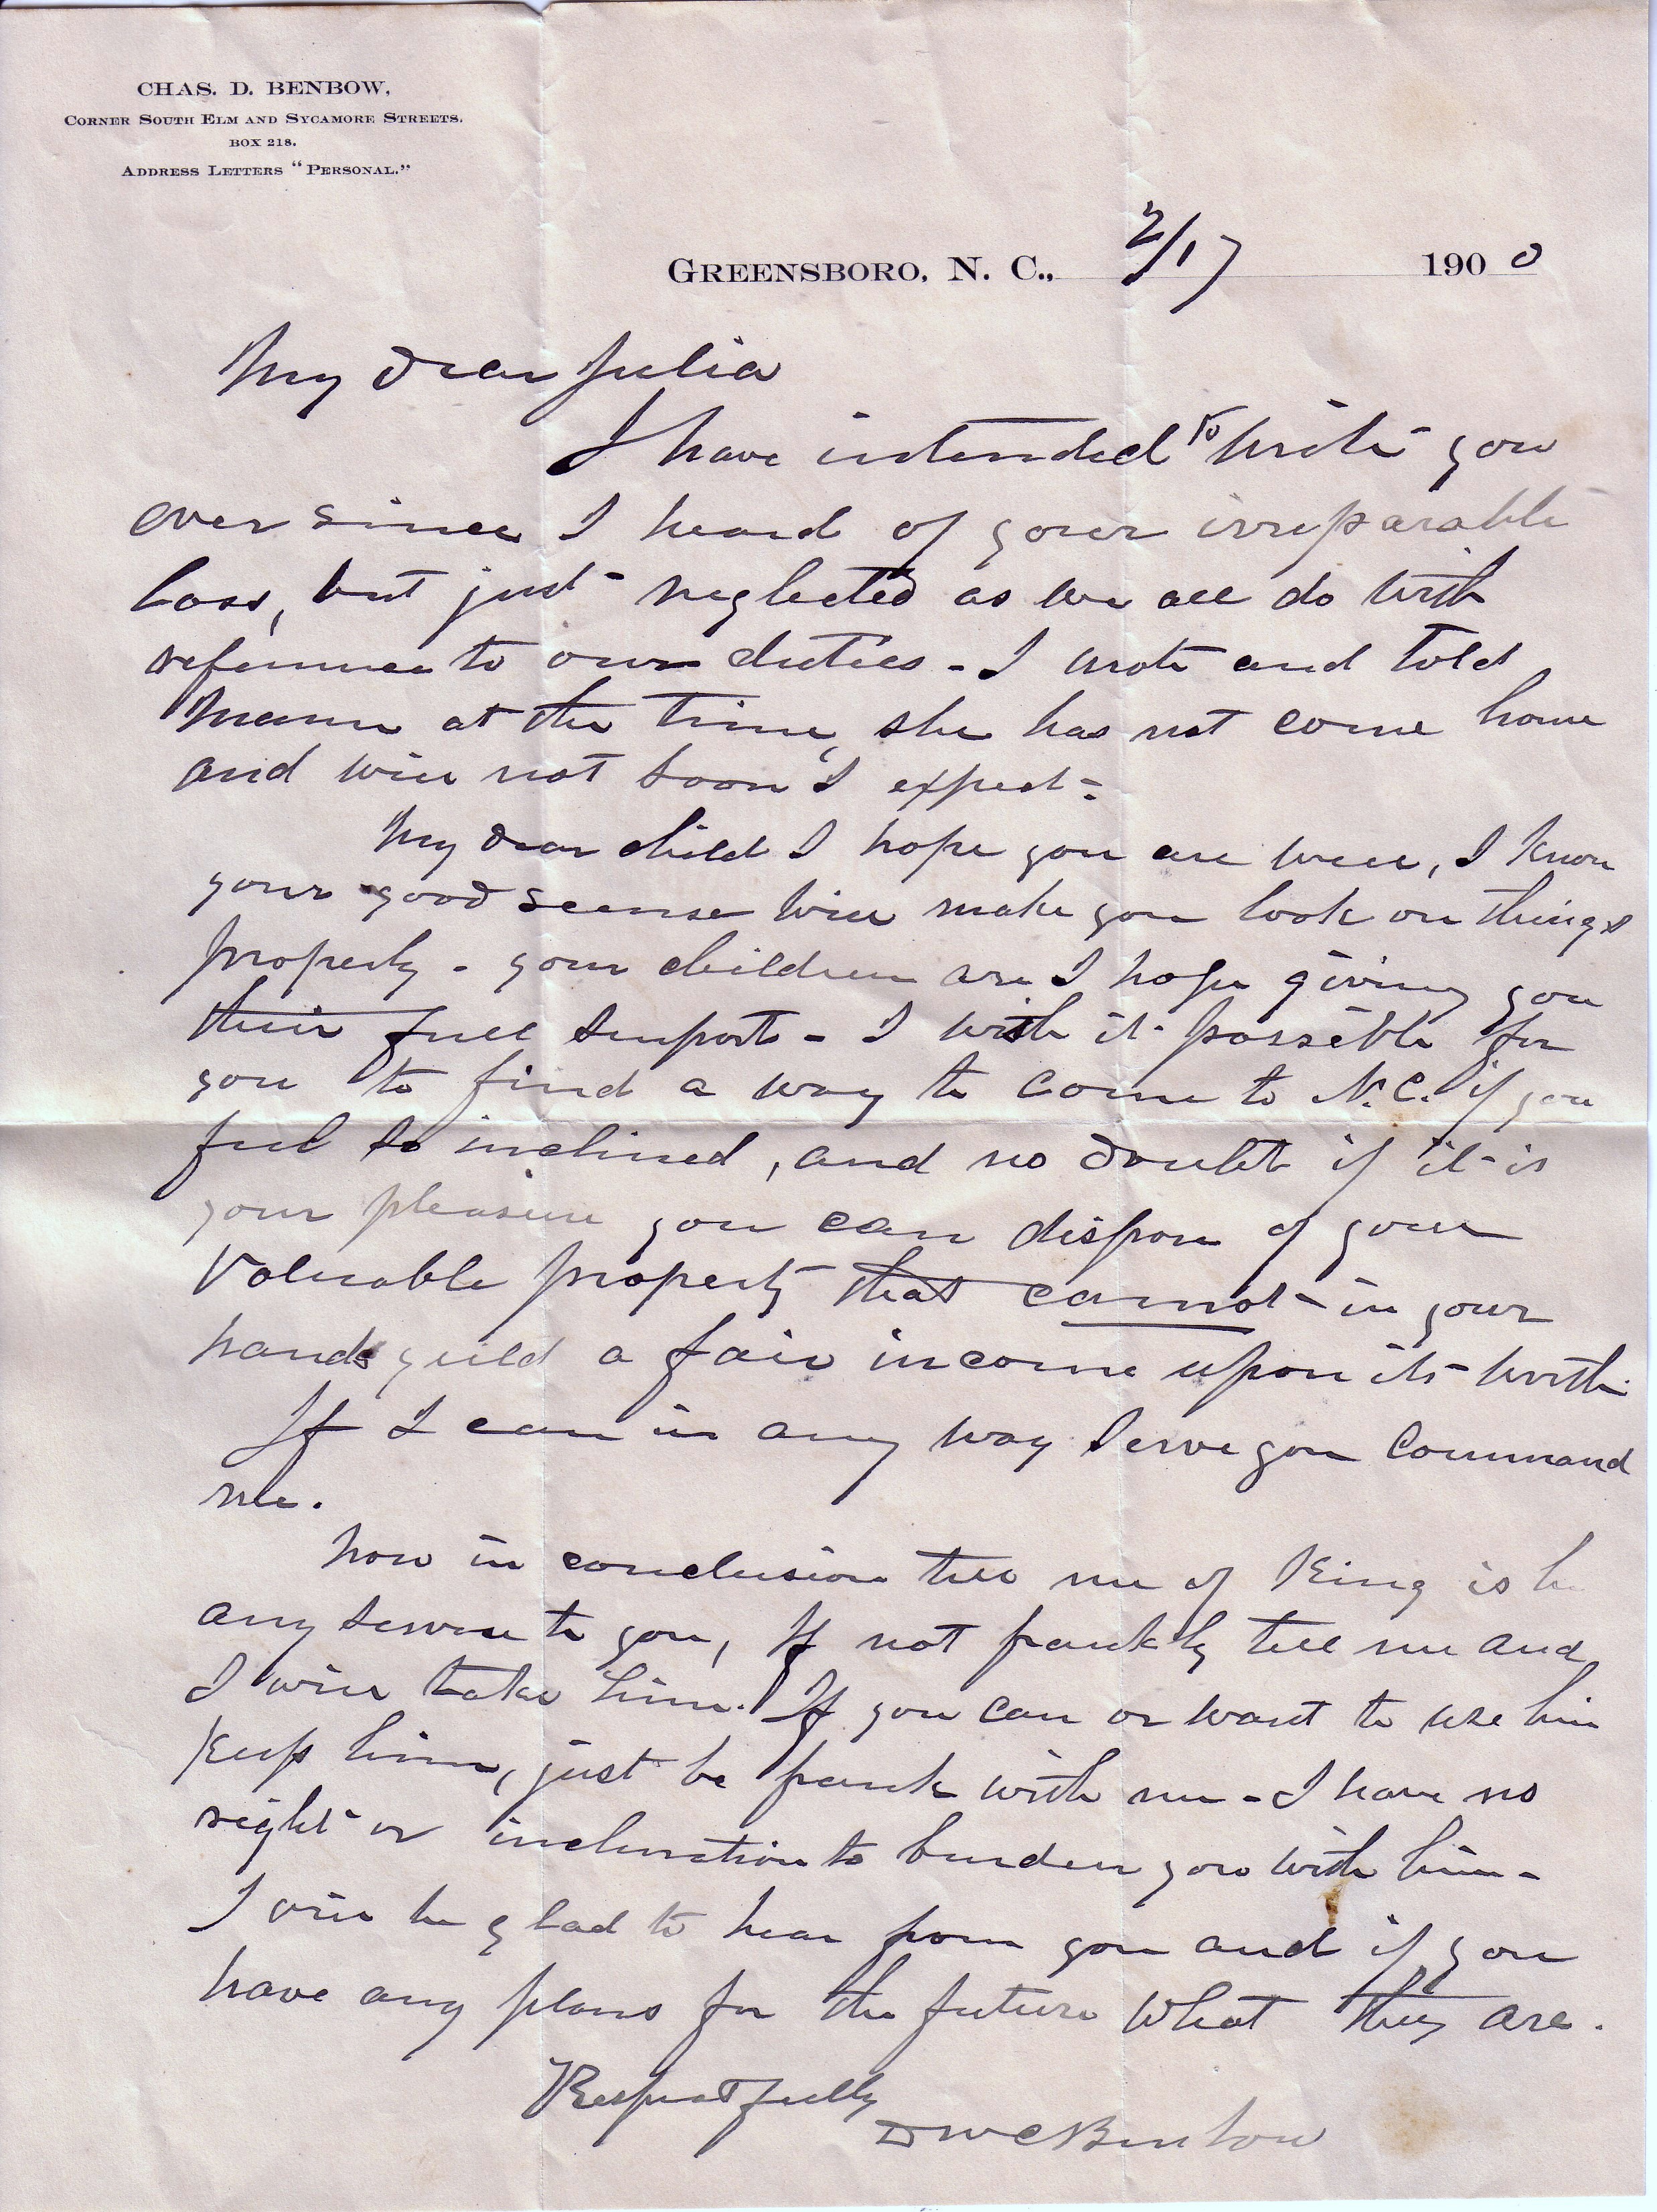 CHAS. D. BENBOW,
CORNER SOUTH ELM AND SYCAMORE STREETS.
BOX 218.
ADDRESS LETTERS "PERSONAL."
GREENSBORO, N. C., 2/17 1900
My dear Julia
I have intended to write you
ever since I heard of your irreparable
loss, but just neglected as we all do with
reference to our duties - I wrote and told
at the time, she has not come home
and will not soon I expect -
My dear child I hope you are well, I know
your good scense will make you look on things
properly - your children are I hope giving you
their full suport - I wish it possible for
you to find a way to come to N.C. if you
feel so inclined, and no doubt if it is
your pleasure you can dispose of your
Valuable property that cannot in your
hands yeild a fair income upon its worth.
If I can in any way serve you Command
me.
Now in conclusion tell me of King is he
any service to you, If not frankly tell me and
I will take him. If you can or want to use him
Keep him, just be frank with me - I have no
right or inclination to burden you with him -
I will be glad to hear from you and if you
have any plans for the future What they are.
Respectfully
DWC Benbow